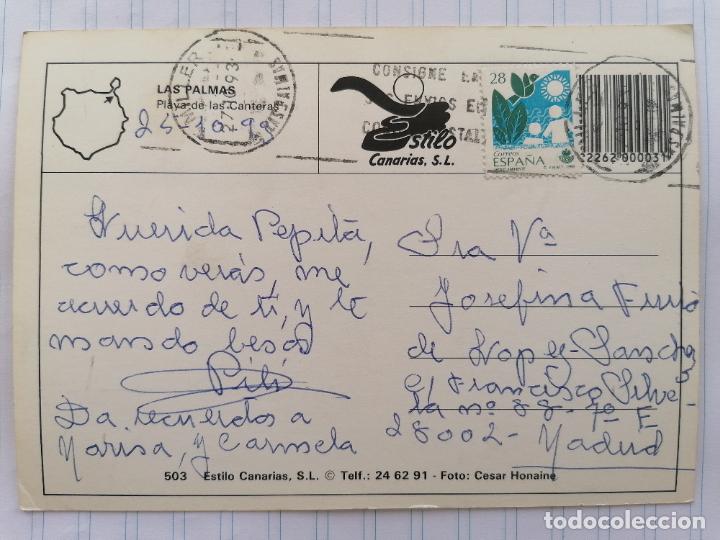 LAS PALMAS
Playa de las Canteras
Estilo
Canarias, S.L.
CONSIGNE
28
Correos
ESPAÑA
22262 000031
Querida Pepita,
como verás, me
acuerdo de ti, y te
mando besos
Pili
Da recuerdos a
Marisa, y Carmela
Sra Vª
Josefina
de Lopez-Sancho
c/ Francisco Silve-
la nº 88- 7º E
28002- Madrid
503 Estilo Canarias, S.L. © Telf.: 24 62 91 - Foto: Cesar Honaine
todocoleccion